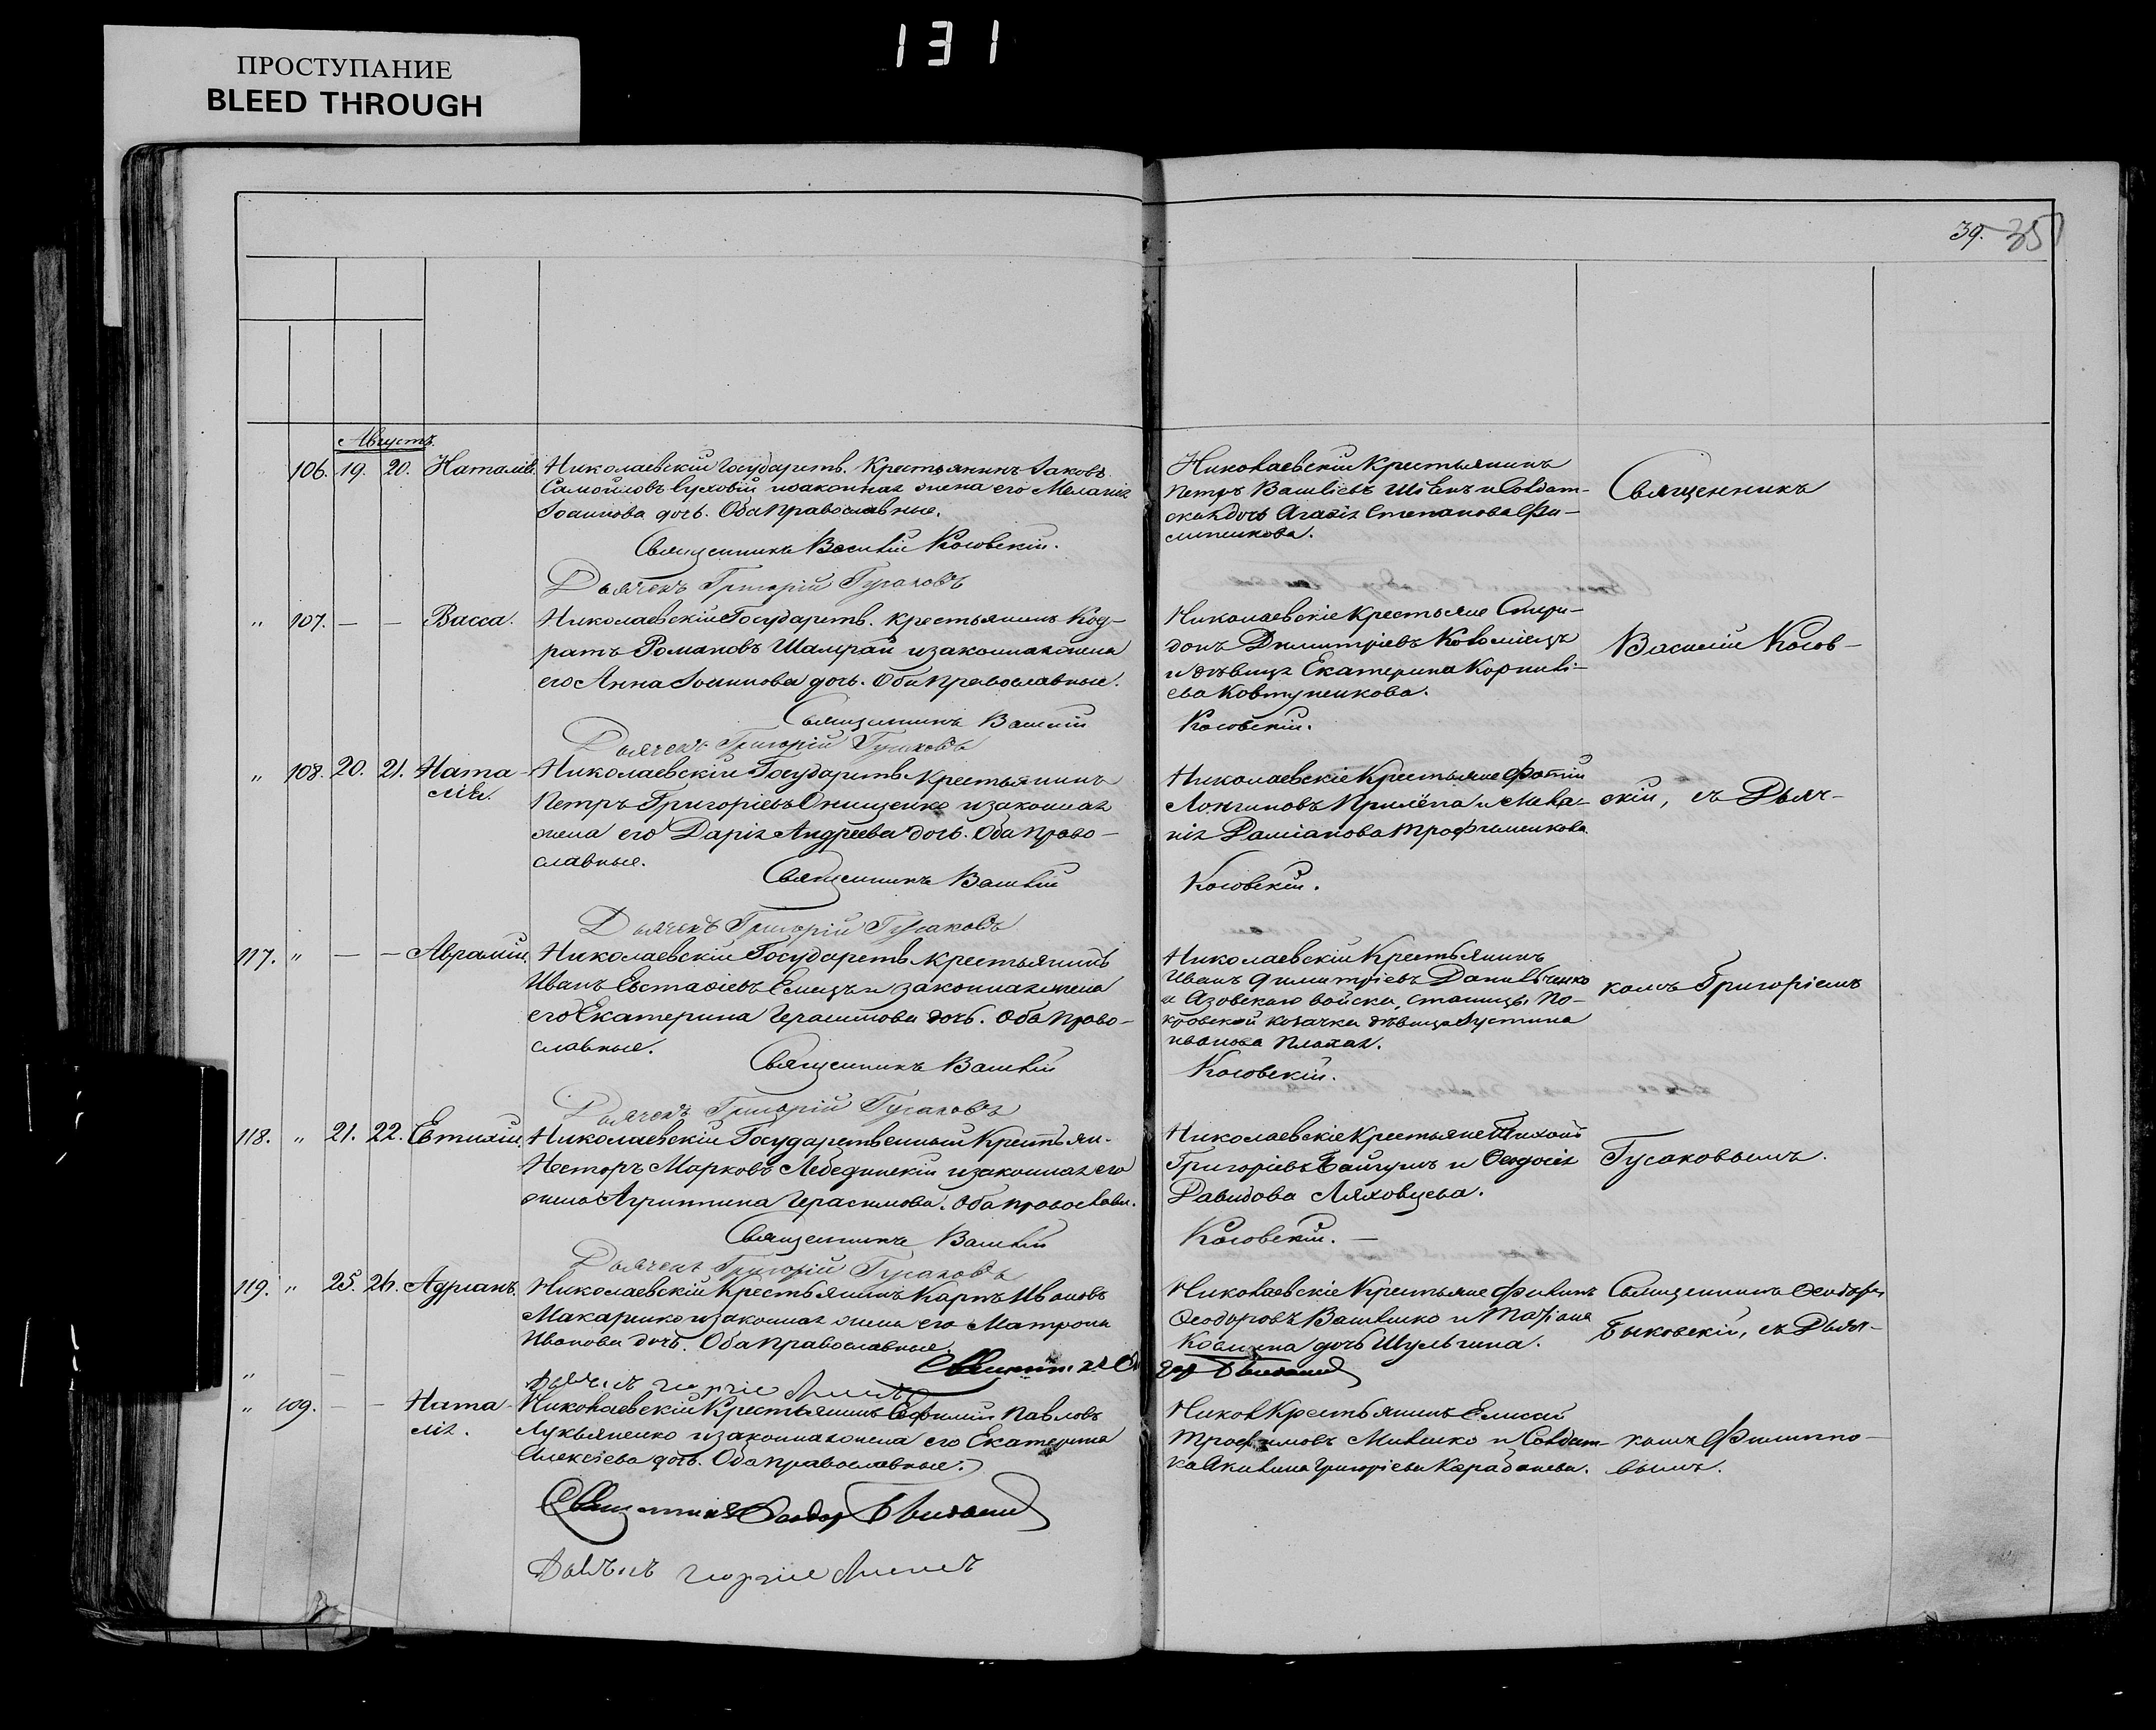 131
ПРОСТУПАНИЕ
BLEED THROUGH
39. 35
Августъ.
106. 19. 20. Наталія. Николаевскій Государств. Крестьянинъ Іаковъ
Самойловъ Суховій и законная жена его Меланія
Іоаннова дочь. Оба Православные.
Священникъ Василій Косовскій.
Дьячекъ Григорій Гусаковъ
Николаевскій Крестьянинъ
Петръ Василіевъ Швецъ и Солдат-
ская дочь Агафія Степанова Фи-
Священникъ
„ 107. — — Васса. Николаевскій Государств. крестьянинъ Код-
ратъ Романовъ Шамрай и законная жена
его Анна Іоаннова дочь. Оба Православные.
Священникъ Василій
Дьячекъ Григорій Гусаковъ
Николаевскіе Крестьяне Спири-
донъ Димитріевъ Коломіецъ
и дѣвица Екатерина Корнилі-
ева Ковтуненкова.
Косовскій.
Василій Косов-
„ 108. 20. 21. Ната-
лія.
Николаевскій Государств. Крестьянинъ
Петръ Григоріевъ Онищенко и законная
жена его Дарія Андреева дочь. Оба право-
славные.
Священникъ Василій
Дьячекъ Григорій Гусаковъ
Николаевскіе Крестьяне Фотій
Лонгиновъ Прилёпа и Мела-
нія Даміанова Трофименкова
Косовскій.
скій, съ Дьяч-
117. „ — — Аврамій. Николаевскій Государств. крестьянинъ
Иванъ Евстафіевъ Емецъ и законная жена
его Екатерина Герасимова дочь. Оба право-
славные.
Священникъ Василій
Дьячекъ Григорій Гусаковъ
Николаевскій Крестьянинъ
Иванъ Димитріевъ Данильченко
и Азовскаго войска, станицы По-
кровской козачка дѣвица Іустина
Иванова Плохая.
Косовскій.
комъ Григоріемъ
118. „ 21. 22. Евтихій. Николаевскій Государственный Крестьян.
Несторъ Марковъ Лебединскій и законная его
жена Агриппина Герасимова. Оба православн.
Священникъ Василій
Дьячекъ Григорій Гусаковъ
Николаевскіе Крестьяне Тихонъ
Григоріевъ и Феодосія
Давидова Ляховцева.
Косовскій. —
Гусаковымъ.
119. „ 25. 26. Адріанъ. Николаевскій Крестьянинъ Карпъ Ивановъ
Макаренко и законная жена его Матрона
Иванова дочь. Оба Православные.
Николаевскіе Крестьяне Филипъ
Феодоровъ Василенко и Татіана
Космина дочь Шульгина.
Священникъ Феодоръ
Быковскій, съ Дьяч-
„ —
„ 109. — — Ната-
лія.
Николаевскій Крестьянинъ Ефимій Павловъ
Лукьяненко и законная жена его Екатерина
Алексіева дочь. Оба православные.
Священникъ Феодоръ Быковскій
Никол Крестьянинъ Елисей
Трофимовъ Миленко и Солдат-
ка Акилина Григоріева Карабанева.
комъ Филиппо-
вымъ.